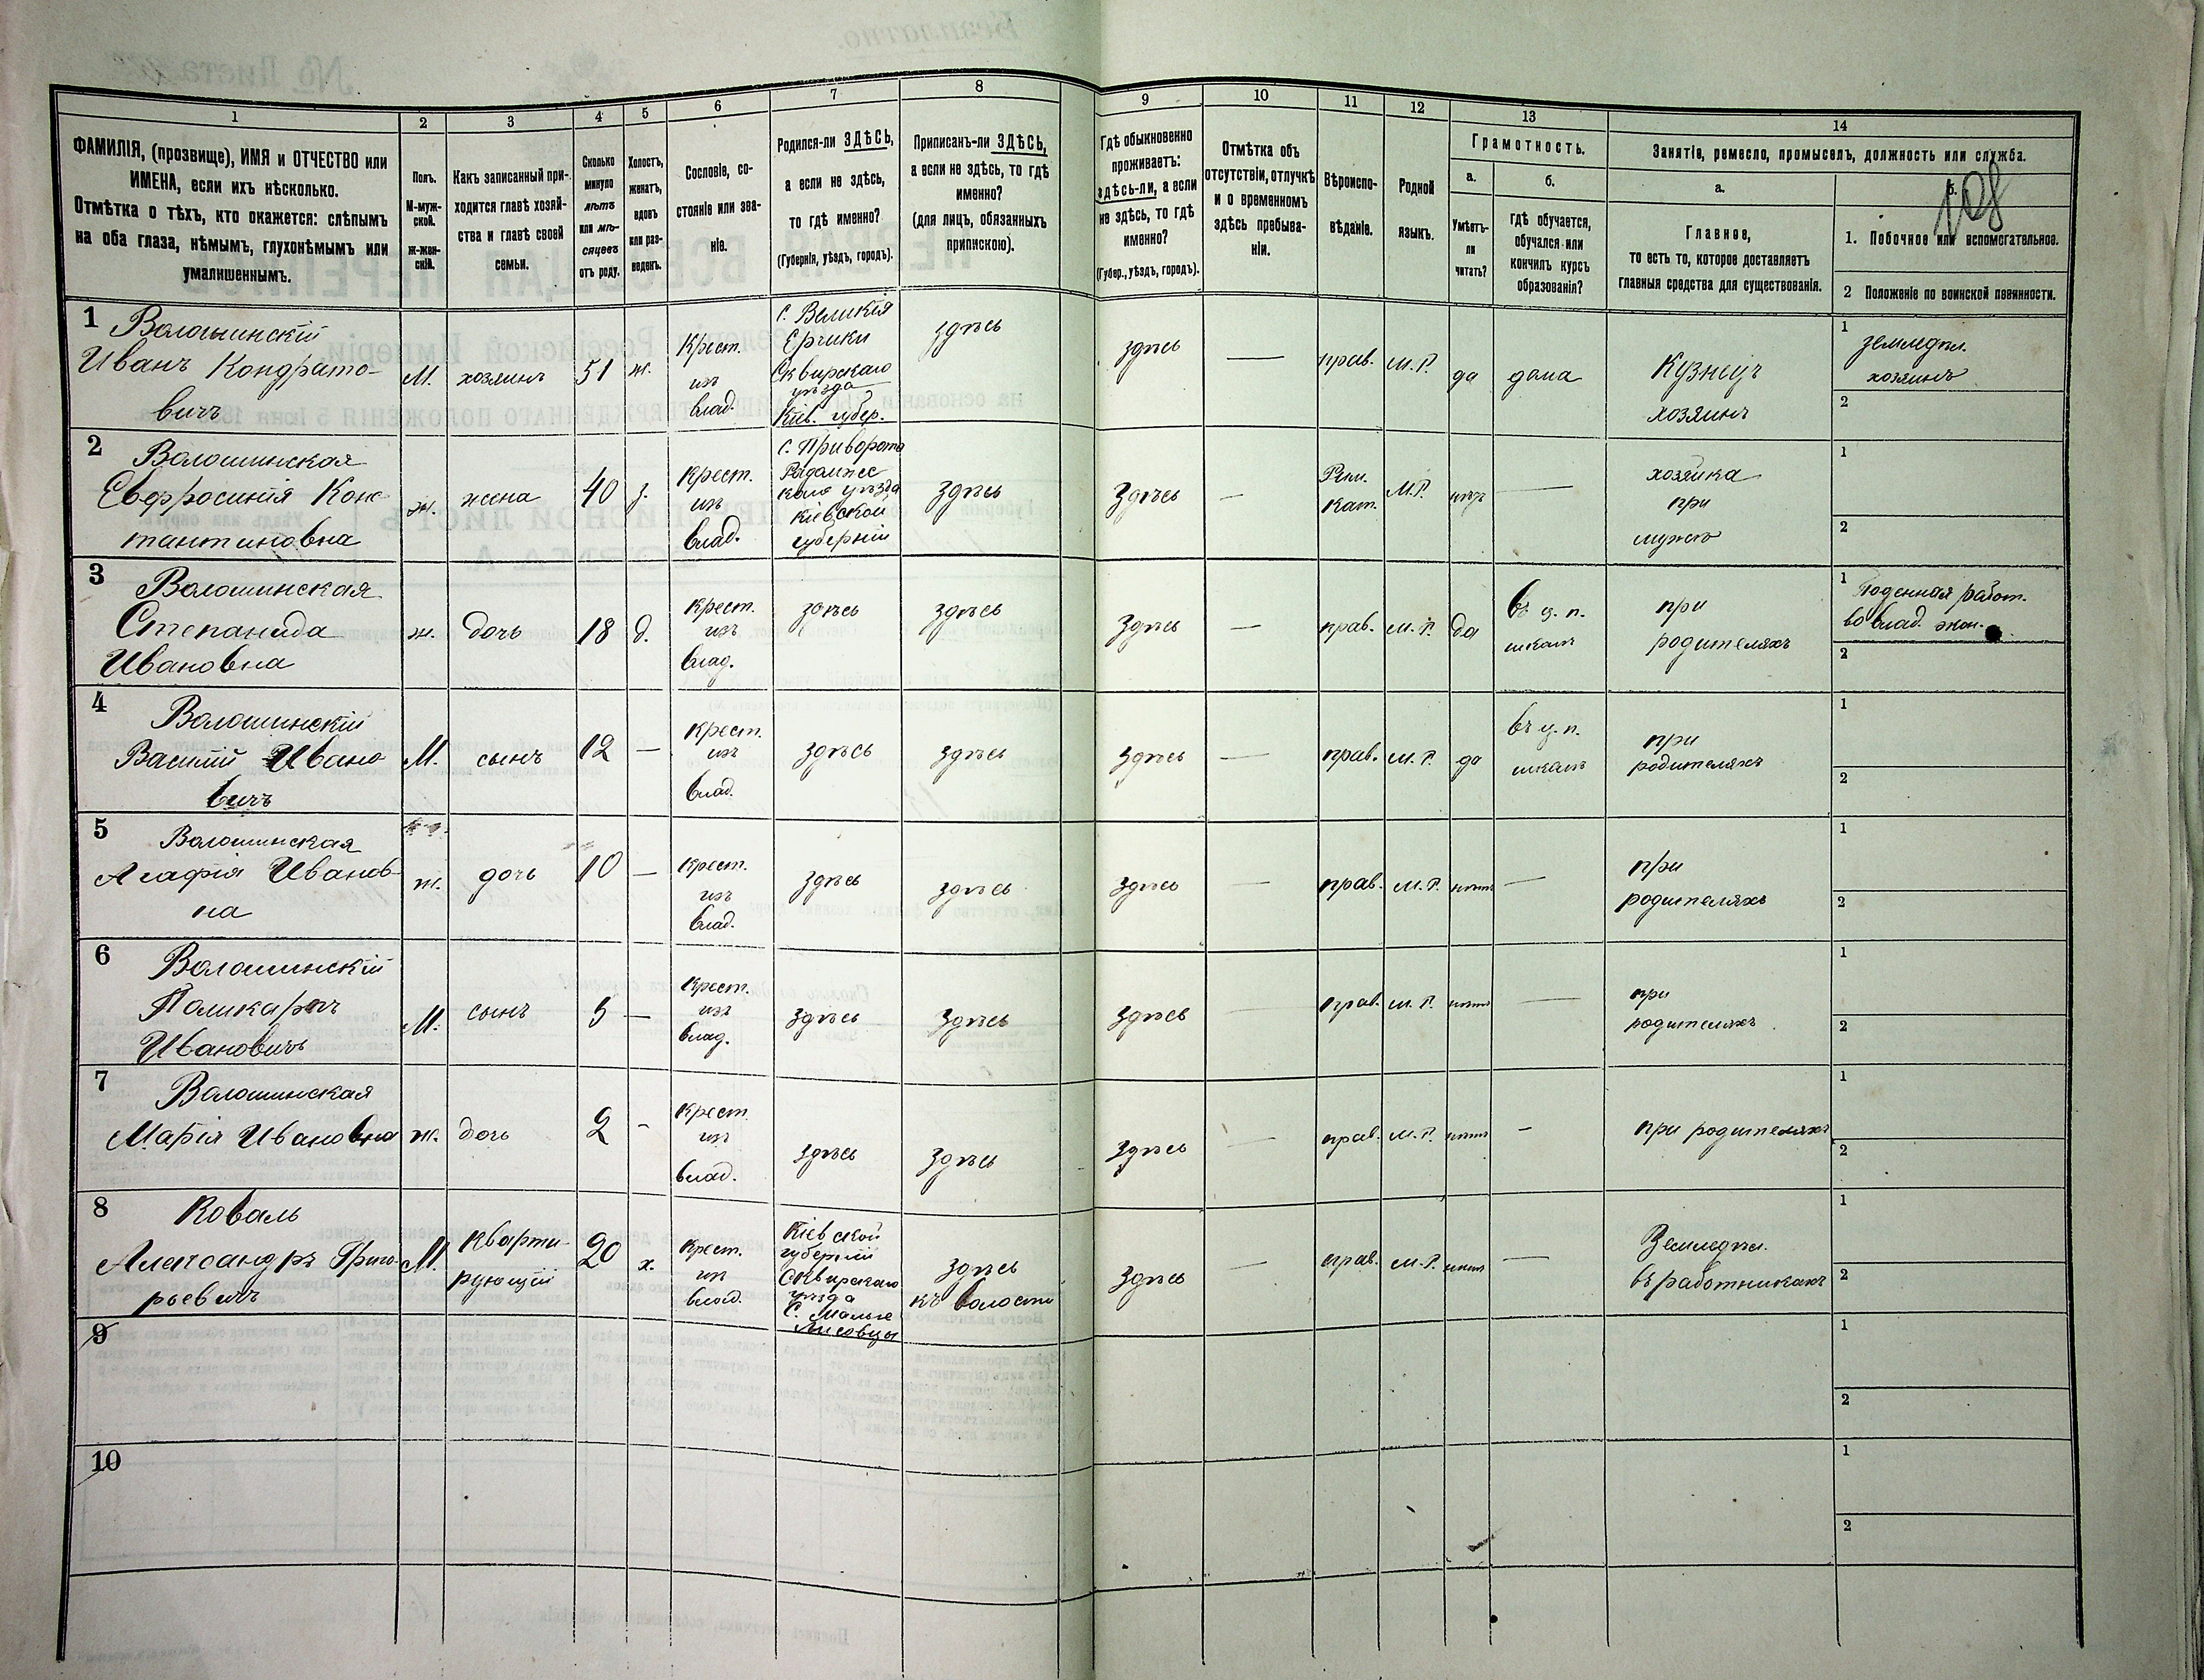 108
1
2
3
4
5
6
7
8
9
10
11
12
13
14
ФАМИЛІЯ, (прозвище), ИМЯ и ОТЧЕСТВО или
ИМЕНА, если ихъ нѣсколько.
Отмѣтка о тѣхъ, кто окажется: слѣпымъ
на оба глаза, нѣмымъ, глухонѣмымъ или
умалишеннымъ.
Полъ.
М-муж-
ской.
ж-жен-
скій.
Какъ записанный при-
ходится главѣ хозяй-
ства и главѣ своей
семьи.
Сколько
минуло
лѣтъ
или мѣ-
сяцевъ
отъ роду.
Холостъ,
женатъ,
вдовъ
или раз-
веденъ.
Сословіе, со-
стояніе или зва-
ніе.
Родился-ли ЗДѢСЬ,
а если не здѣсь,
то гдѣ именно?
(Губернія, уѣздъ, городъ).
Приписанъ-ли ЗДѢСЬ,
а если не здѣсь, то гдѣ
именно?
(для лицъ, обязанныхъ
припискою).
Гдѣ обыкновенно
проживаетъ:
здѣсь-ли, а если
не здѣсь, то гдѣ
именно?
(Губер., уѣздъ, городъ).
Отмѣтка объ
отсутствіи, отлучкѣ
и о временномъ
здѣсь пребыва-
ніи.
Вѣроиспо-
вѣданіе.
Родной
языкъ.
Грамотность.
а.
Умѣетъ-
ли
читать?
б.
гдѣ обучается,
обучался или
кончилъ курсъ
образованія?
Занятіе, ремесло, промыселъ, должность или служба.
а.
Главное,
то есть то, которое доставляетъ
главныя средства для существованія.
б.
1. Побочное или вспомогательное.
2 Положеніе по воинской повинности.
1
Волошинскій
Иванъ Кондрато-
вичъ
М.
хозяинъ
51
ж.
Крест.
изъ
влад.
с. Великія
Ерчики
Сквирскаго
уѣзда
Кіев. губер.
здѣсь
здѣсь
—
прав.
М.Р.
да
дома
Кузнецъ
хозяинъ
1
земледѣл.
хозяинъ
2
2
Волошинская
Евфросинія Конс
тантиновна
ж.
жена
40
з.
Крест.
изъ
влад.
с. Приворотъ
Радомыс
каго уѣзда
Кіевской
губерніи
здѣсь
здѣсь
—
Рим.
кат.
М.Р.
нѣтъ
—
хозяйка
при
мужѣ
1
2
3
Волошинская
Степанида
Ивановна
ж.
дочь
18
д.
Крест.
изъ
влад.
здѣсь
здѣсь
здѣсь
—
прав.
М. Р.
да
въ ц. п.
школѣ
при
родителяхъ
1
Поденная работ.
во влад. экон.
2
4
Волошинскій
Василій Ивано
вичъ
М.
сынъ
12
—
Крест.
изъ
влад.
здѣсь
здѣсь
здѣсь
—
прав.
М. Р.
да
въ ц. п.
школѣ
при
родителяхъ
1
2
5
Волошинская
Агафія Иванов-
на
ж.
дочь
10
—
Крест.
изъ
влад.
здѣсь
здѣсь
здѣсь
—
прав.
М. Р.
нѣтъ
—
при
родителяхъ
1
2
6
Волошинскій
Поликарпъ
Ивановичъ
М.
сынъ
5
—
Крест.
изъ
влад.
здѣсь
здѣсь
здѣсь
—
прав.
М. Р.
нѣтъ
—
при
родителяхъ
1
2
7
Волошинская
Марія Ивановна
ж.
дочь
2
-
Крест.
изъ
влад.
здѣсь
здѣсь
здѣсь
—
прав.
М. Р.
нѣтъ
-
при родителяхъ
1
2
8
Коваль
Александръ Григо-
рьевичъ
М.
кварти
рующій
20
х.
Крест.
изъ
влад.
Кіевской
губерніи
Сквирскаго
уѣзда
с. Малые
Лисовцы
здѣсь
къ волости
здѣсь
—
прав.
М. Р.
нѣтъ
—
Земледѣл.
въ работникахъ
1
2
9
1
2
10
1
2